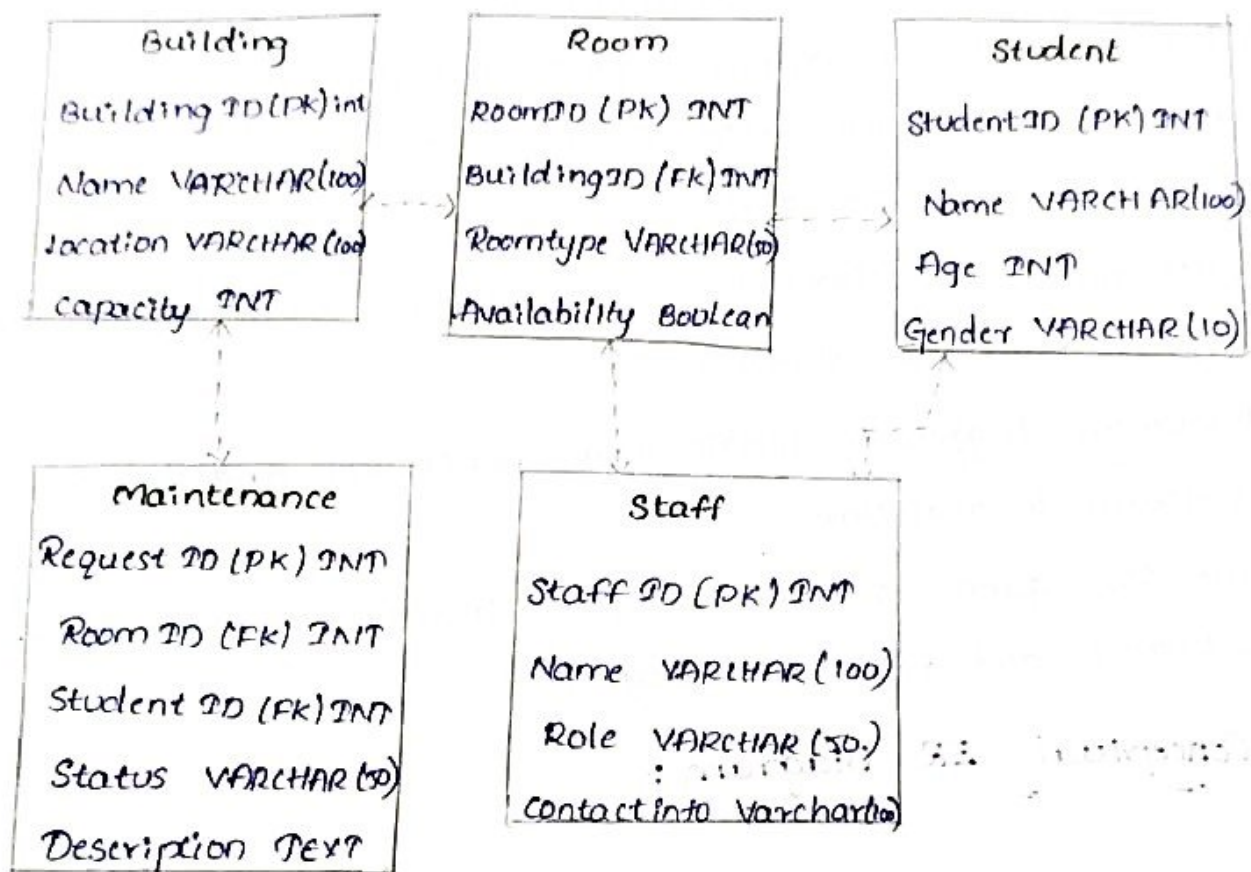 Building
Building ID (PK) int
Name VARCHAR(100)
location VARCHAR(100)
capacity INT
Room
RoomID (PK) INT
BuildingID (FK) INT
Roomtype VARCHAR(50)
Availability Boolean
Student
StudentID (PK) INT
Name VARCHAR(100)
Age INT
Gender VARCHAR(10)
Maintenance
Request ID (PK) INT
Room ID (FK) INT
Student ID (FK) INT
Status VARCHAR(50)
Description TEXT
Staff
Staff ID (PK) INT
Name VARCHAR(100)
Role VARCHAR(50)
Contact info Varchar(100)